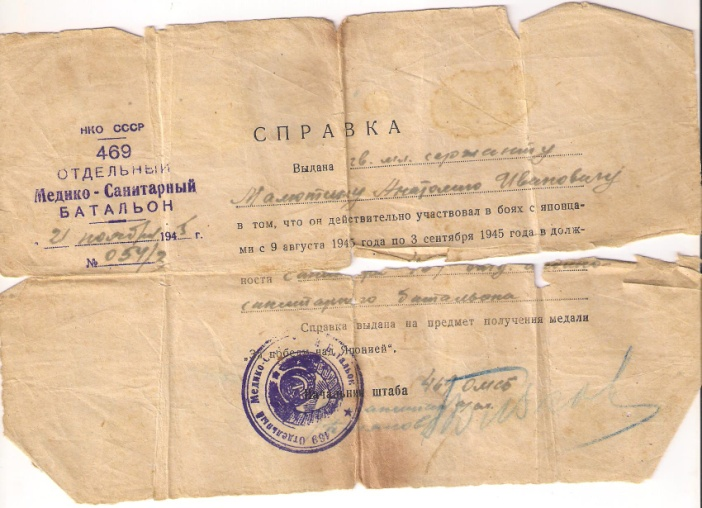 НКО СССР
469
ОТДЕЛЬНЫЙ
Медико-Санитарный
БАТАЛЬОН
21 ноября 1945 г.
№ 054/2
СПРАВКА
Выдана гв. мл. сержанту
Малютину Анатолию Ивановичу
в том, что он действительно участвовал в боях с японца-
ми с 9 августа 1945 года по 3 сентября 1945 года в долж-
ности санитара
санитарного батальона
Справка выдана на предмет получения медали
"За победу над Японией".
Начальник штаба 469 ОМСБ
469 Отдельный Медико-Санитарный Батальон